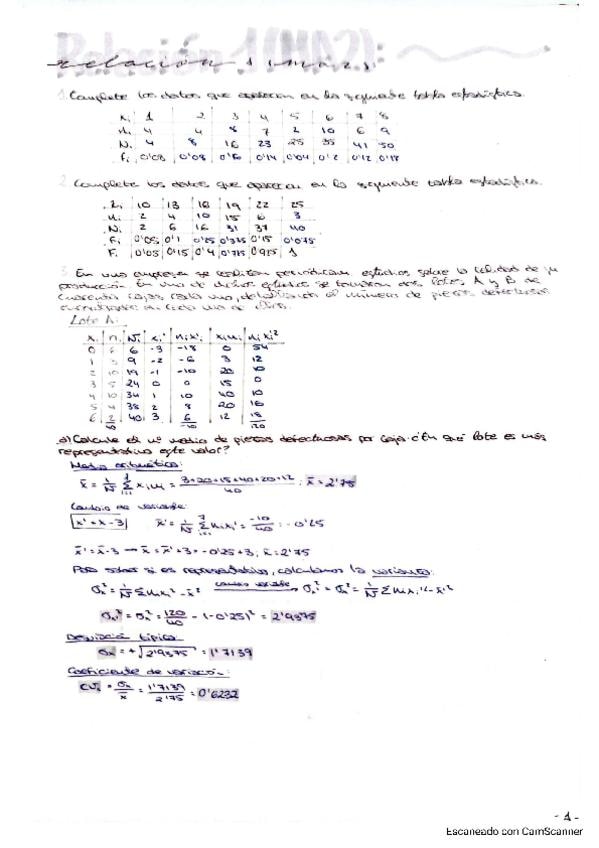 Relación 1 (MA2):
relación 1 (MA2)
1. Complete los datos que aparecen en la siguiente tabla estadística.
xi 1 2 3 4 5 6 7 8
ni 4 4 8 7 2 10 6 9
Ni 4 8 16 23 25 35 41 50
fi 0'08 0'08 0'16 0'14 0'04 0'2 0'12 0'18
2. Complete los datos que aparecen en la siguiente tabla estadística.
xi 10 13 16 19 22 25
ni 2 4 10 15 6 3
Ni 2 6 16 31 37 40
fi 0'05 0'1 0'25 0'375 0'15 0'075
Fi 0'05 0'15 0'4 0'775 0'925 1
3. En una empresa se realizan periódicam. estudios sobre la calidad de su
producción. En uno de dichos estudios se tomaron dos lotes, A y B de
cuarenta cajas cada uno, detallando el número de piezas defectuosas
encontradas en cada una de ellas.
Lote A:
xi ni Ni xi' ni xi' xi ni ni xi'²
0 6 6 -3 -18 0 54
1 3 9 -2 -6 3 12
2 10 19 -1 -10 20 10
3 5 24 0 0 15 0
4 10 34 1 10 40 10
5 4 38 2 8 20 16
6 2 40 3 6 12 18
40 -10 120
a) Calcule el nº medio de piezas defectuosas por caja. ¿En qué lote es más
representativo este valor?
Media aritmética:
x̄ = 1/N Σ xi ni = 3+20+15+40+20+12 / 40 ; x̄ = 2'75
Cambio de variable:
x' = x-3 x̄' = 1/N Σ ni xi' = -10/40 = -0'25
x̄' = x̄-3 → x̄ = x̄'+3 = -0'25+3; x̄ = 2'75
Para saber si es representativo, calculamos la varianza:
σx² = 1/N Σ ni xi² - x̄² cambio variable → σx² = σx'² = 1/N Σ ni xi'² - x̄'²
σx'² = σx² = 120/40 - (-0'25)² = 2'9375
Desviación típica:
σx = +√2'9375 = 1'7139
Coeficiente de variación:
CVx = σx/x̄ = 1'7139/2'75 = 0'6232
- 1 -
Escaneado con CamScanner